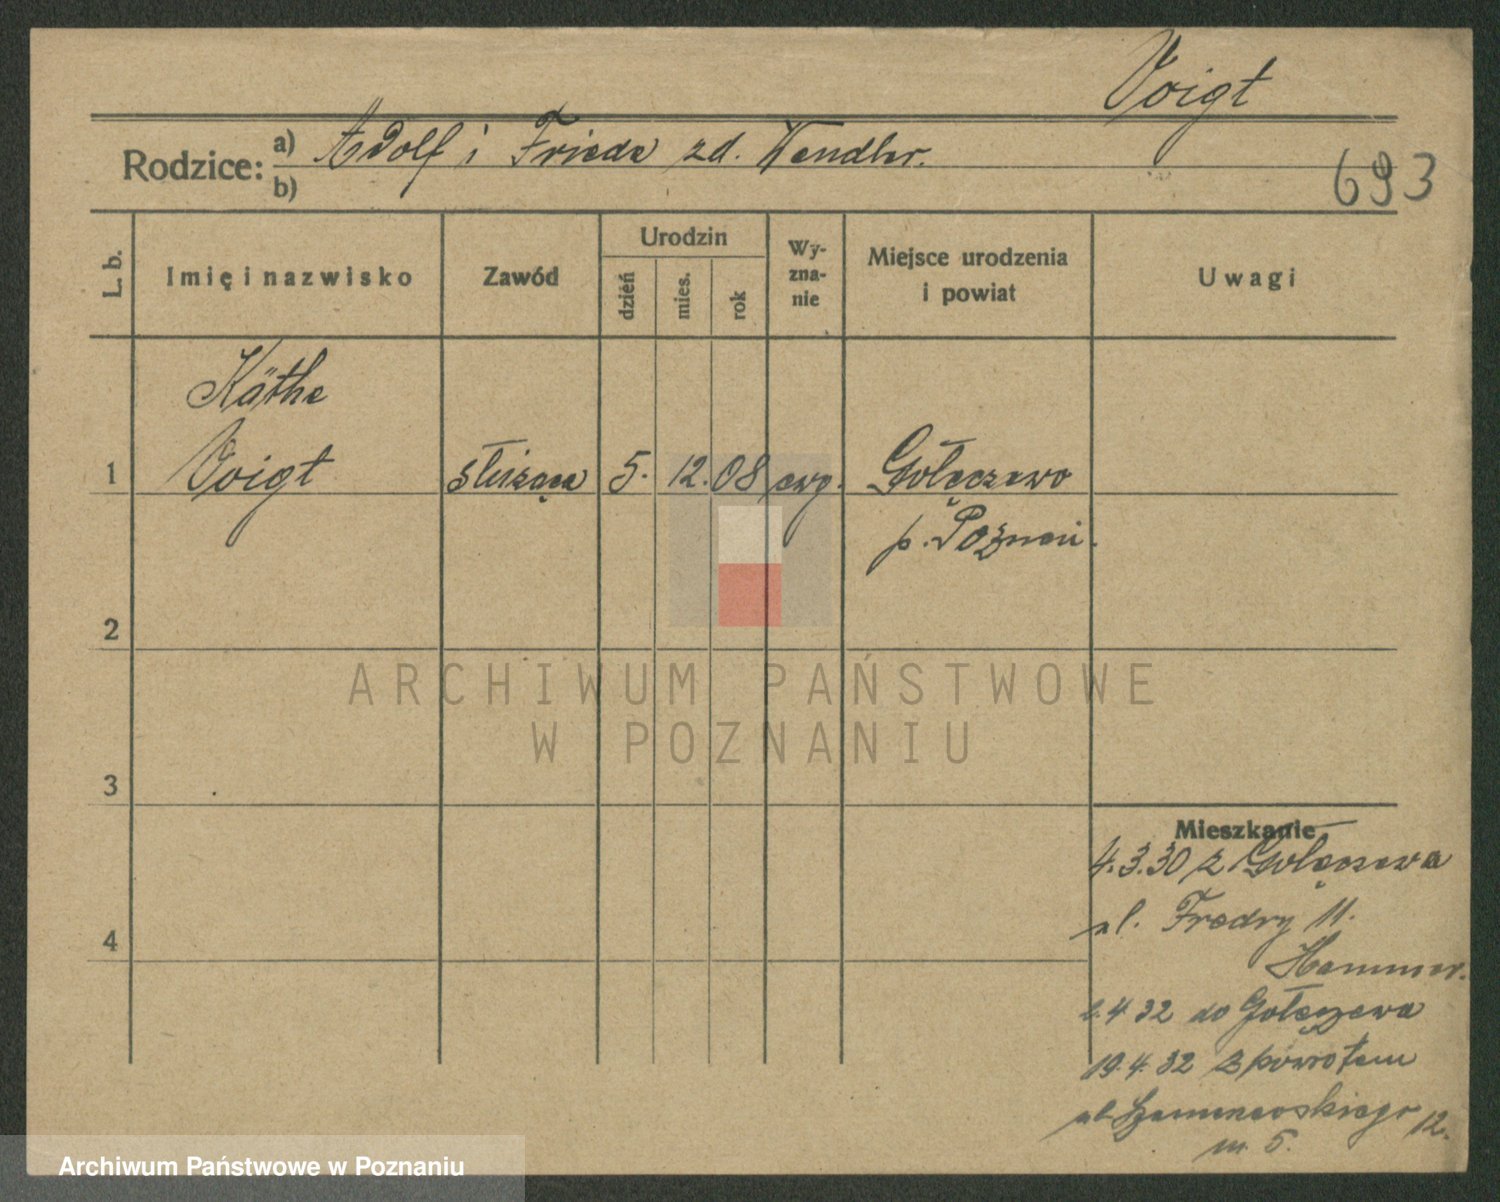 Voigt
Rodzice:
a) Adolf i Frieda zd. Wendler.
b)
693
L. b.
Imię i nazwisko
Zawód
Urodzin
dzień
mies.
rok
Wy-
zna-
nie
Miejsce urodzenia
i powiat
Uwagi
Käthe
1 Voigt służąca 5. 12. 08 ewg. Gołęczewo
p. Poznań.
2
3
4
ARCHIWUM PAŃSTWOWE
W POZNANIU
Mieszkanie
4.3.30 z Gołęczewa
ul. Fredry 11.
Hammer.
4 32 do Gołęczewa
19.4.32 z powrotem
ul. 12.
m. 5.
Archiwum Państwowe w Poznaniu